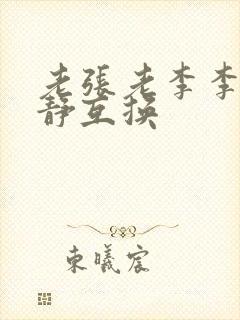 老張老李李
靜互換
東曦宸